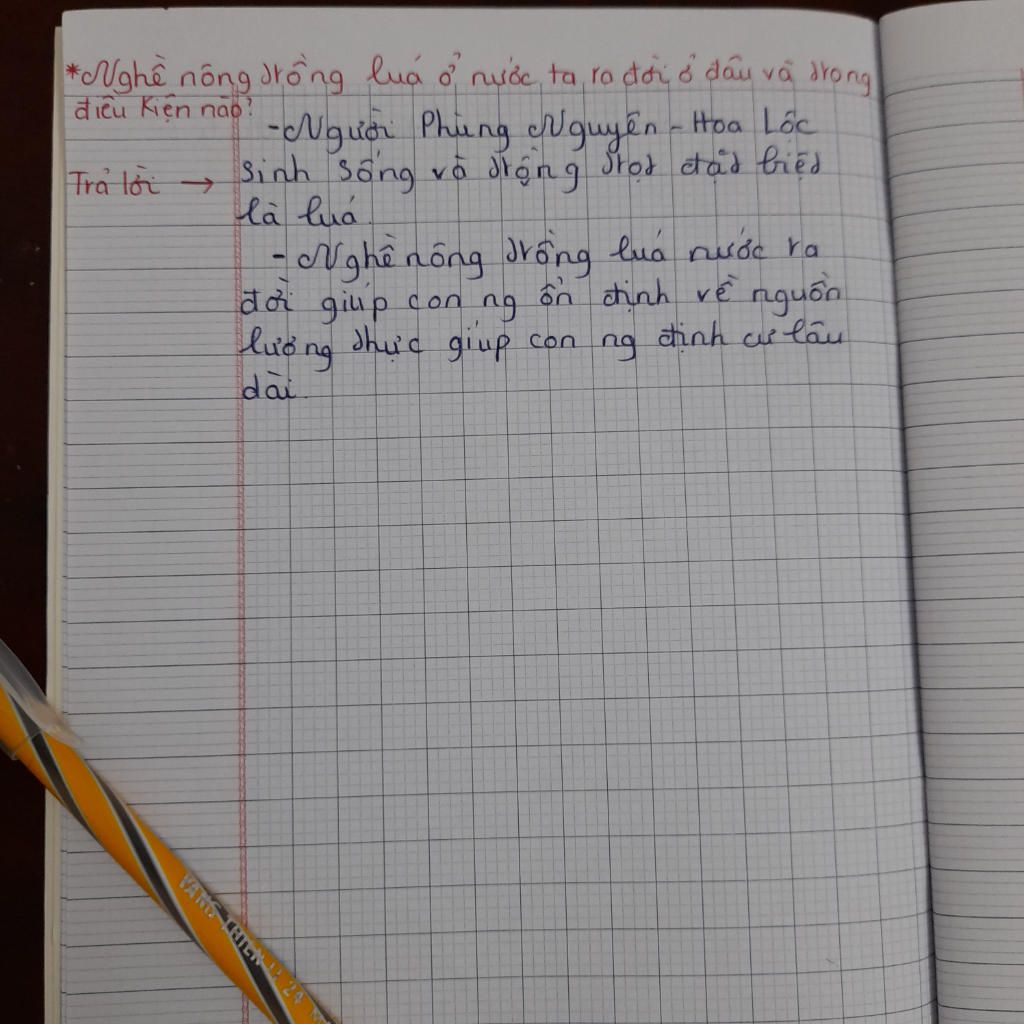 *Nghề nông trồng luá ở nước ta ra đời ở đâu và trong
điều Kiện nào?
-Người Phùng Nguyên - Hoa Lốc
Trả lời → sinh sống và trồng trọt đặt biệt
là luá.
- Nghề nông trồng luá nước ra
đời giúp con ng ổn định về nguồn
lương thực giúp con ng định cư lâu
dài.
THIÊN
24